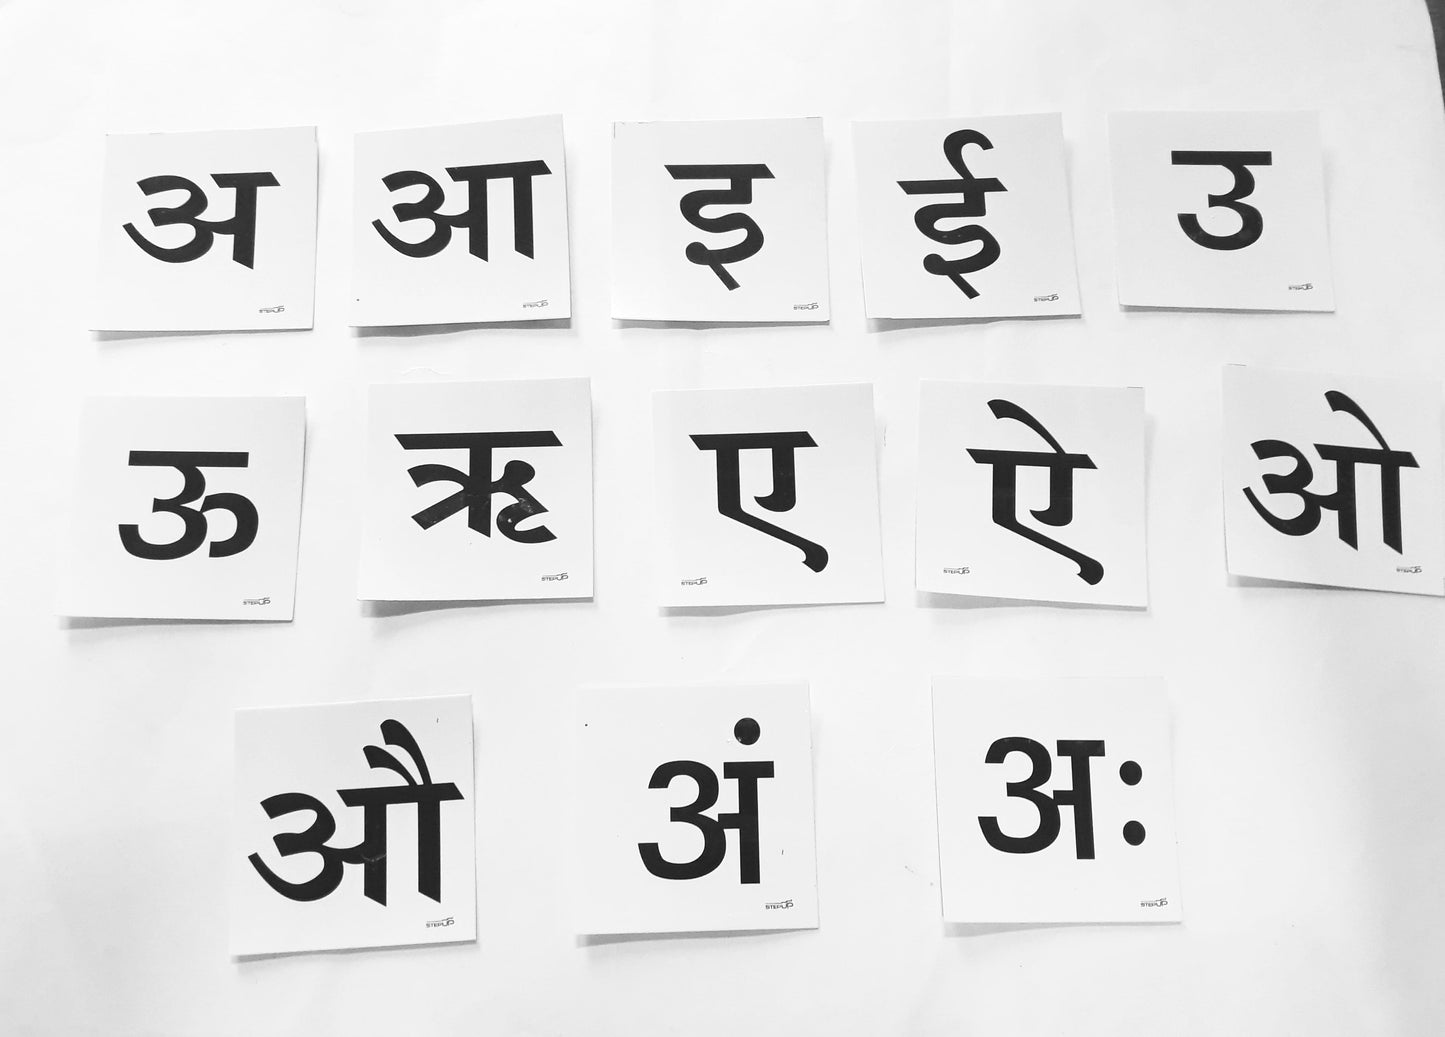 अ आ इ ई उ
STEPUP STEPUP STEPUP STEPUP STEPUP
ऊ ऋ ए ऐ ओ
STEPUP STEPUP STEPUP STEPUP STEPUP
औ अं अः
STEPUP STEPUP STEPUP